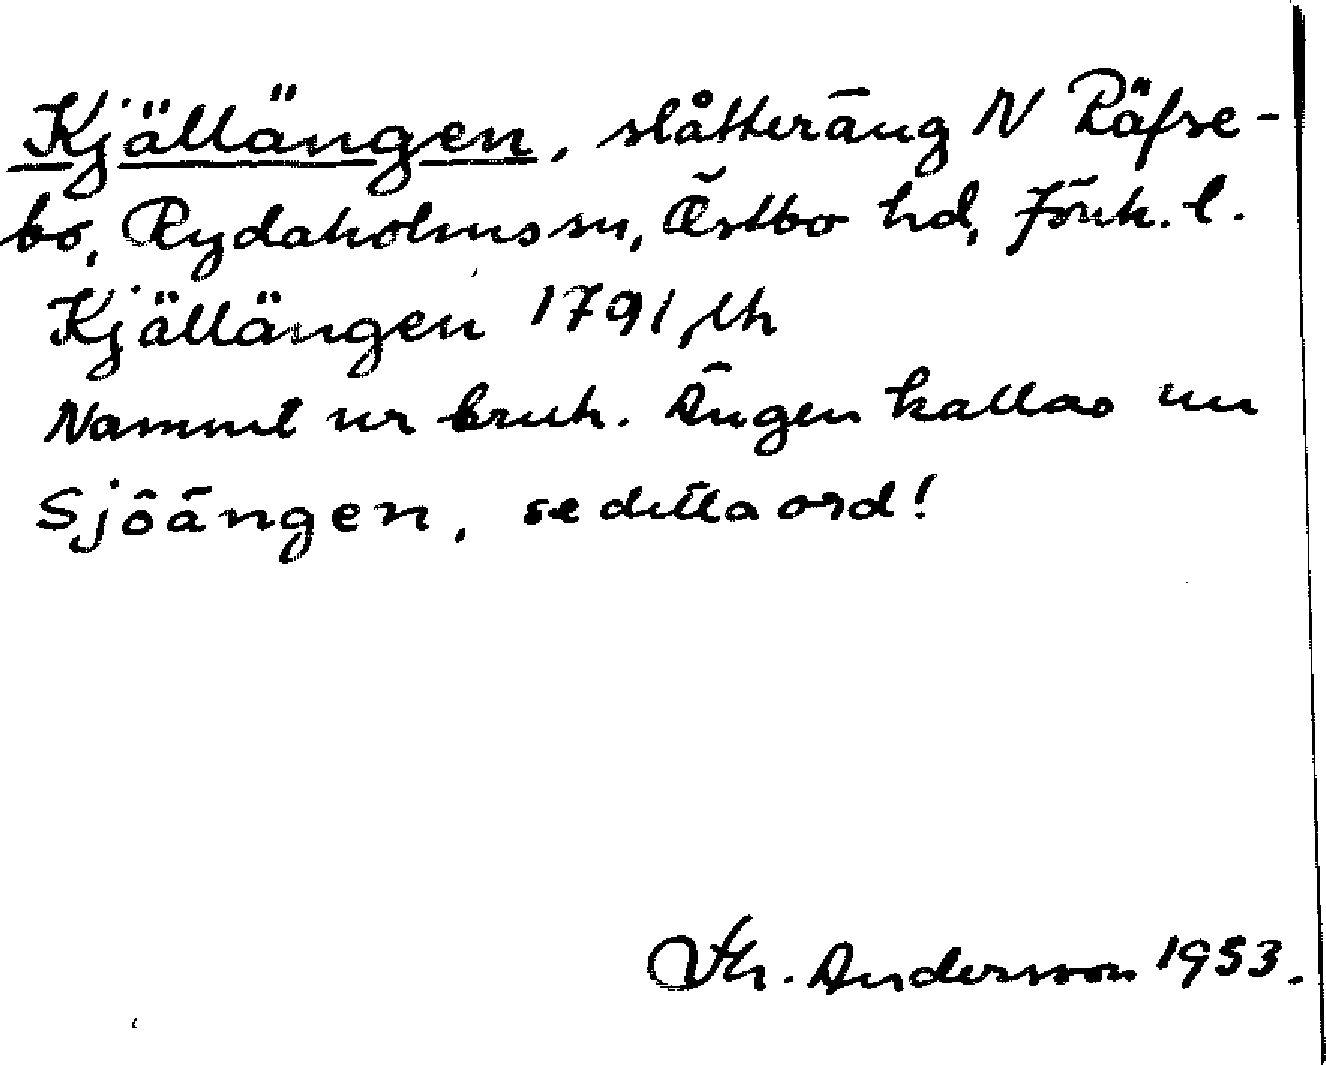 Kjällängen, slåtteräng N Räfse-
bo, Rydaholms sn, Östbo hd, Jönk. l.
Kjällängen 1791, lh
Namnet ur bruk. Ängen kallas nu
Sjöängen, se detta ord!
Th. Andersson 1953.